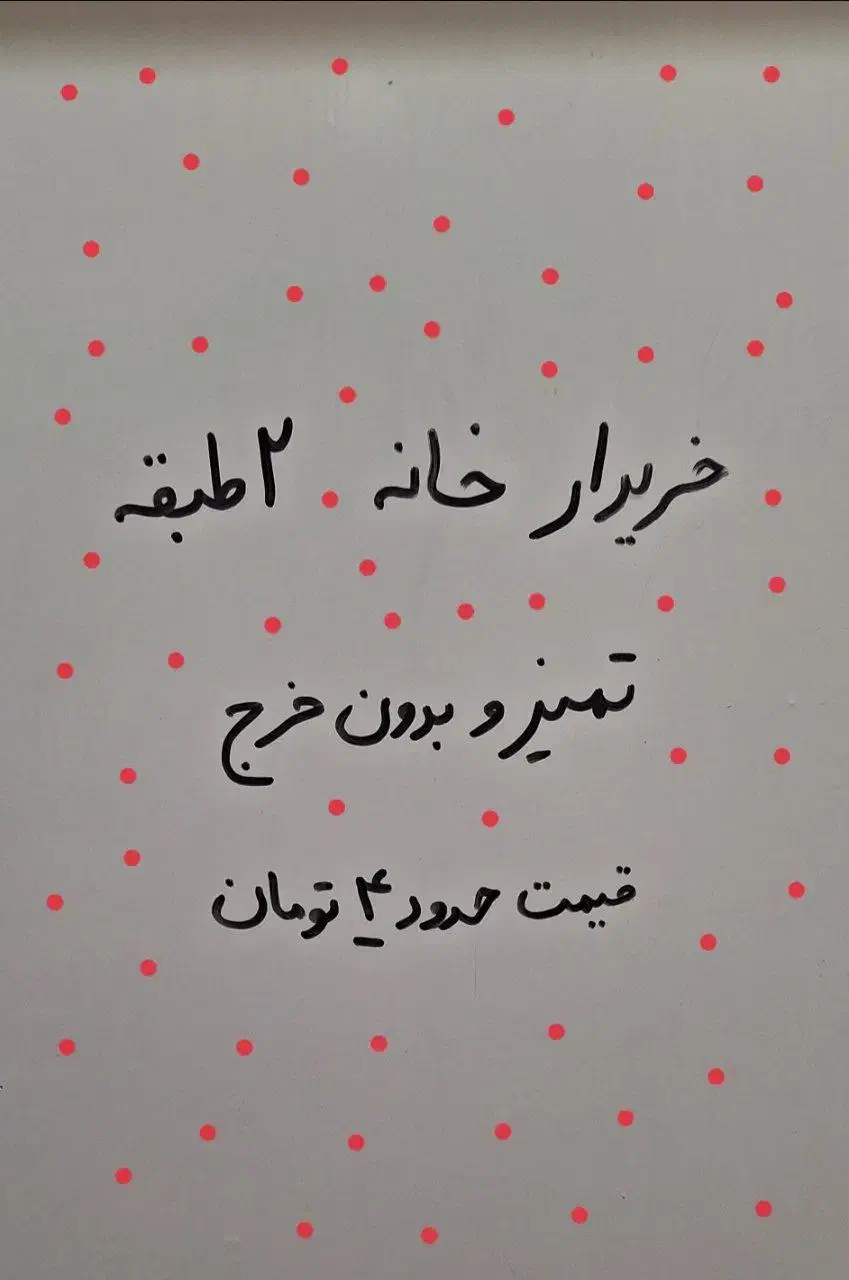 خریدار خانه ۲ طبقه
تمیز و بدون خرج
قیمت حدود ۴ تومان